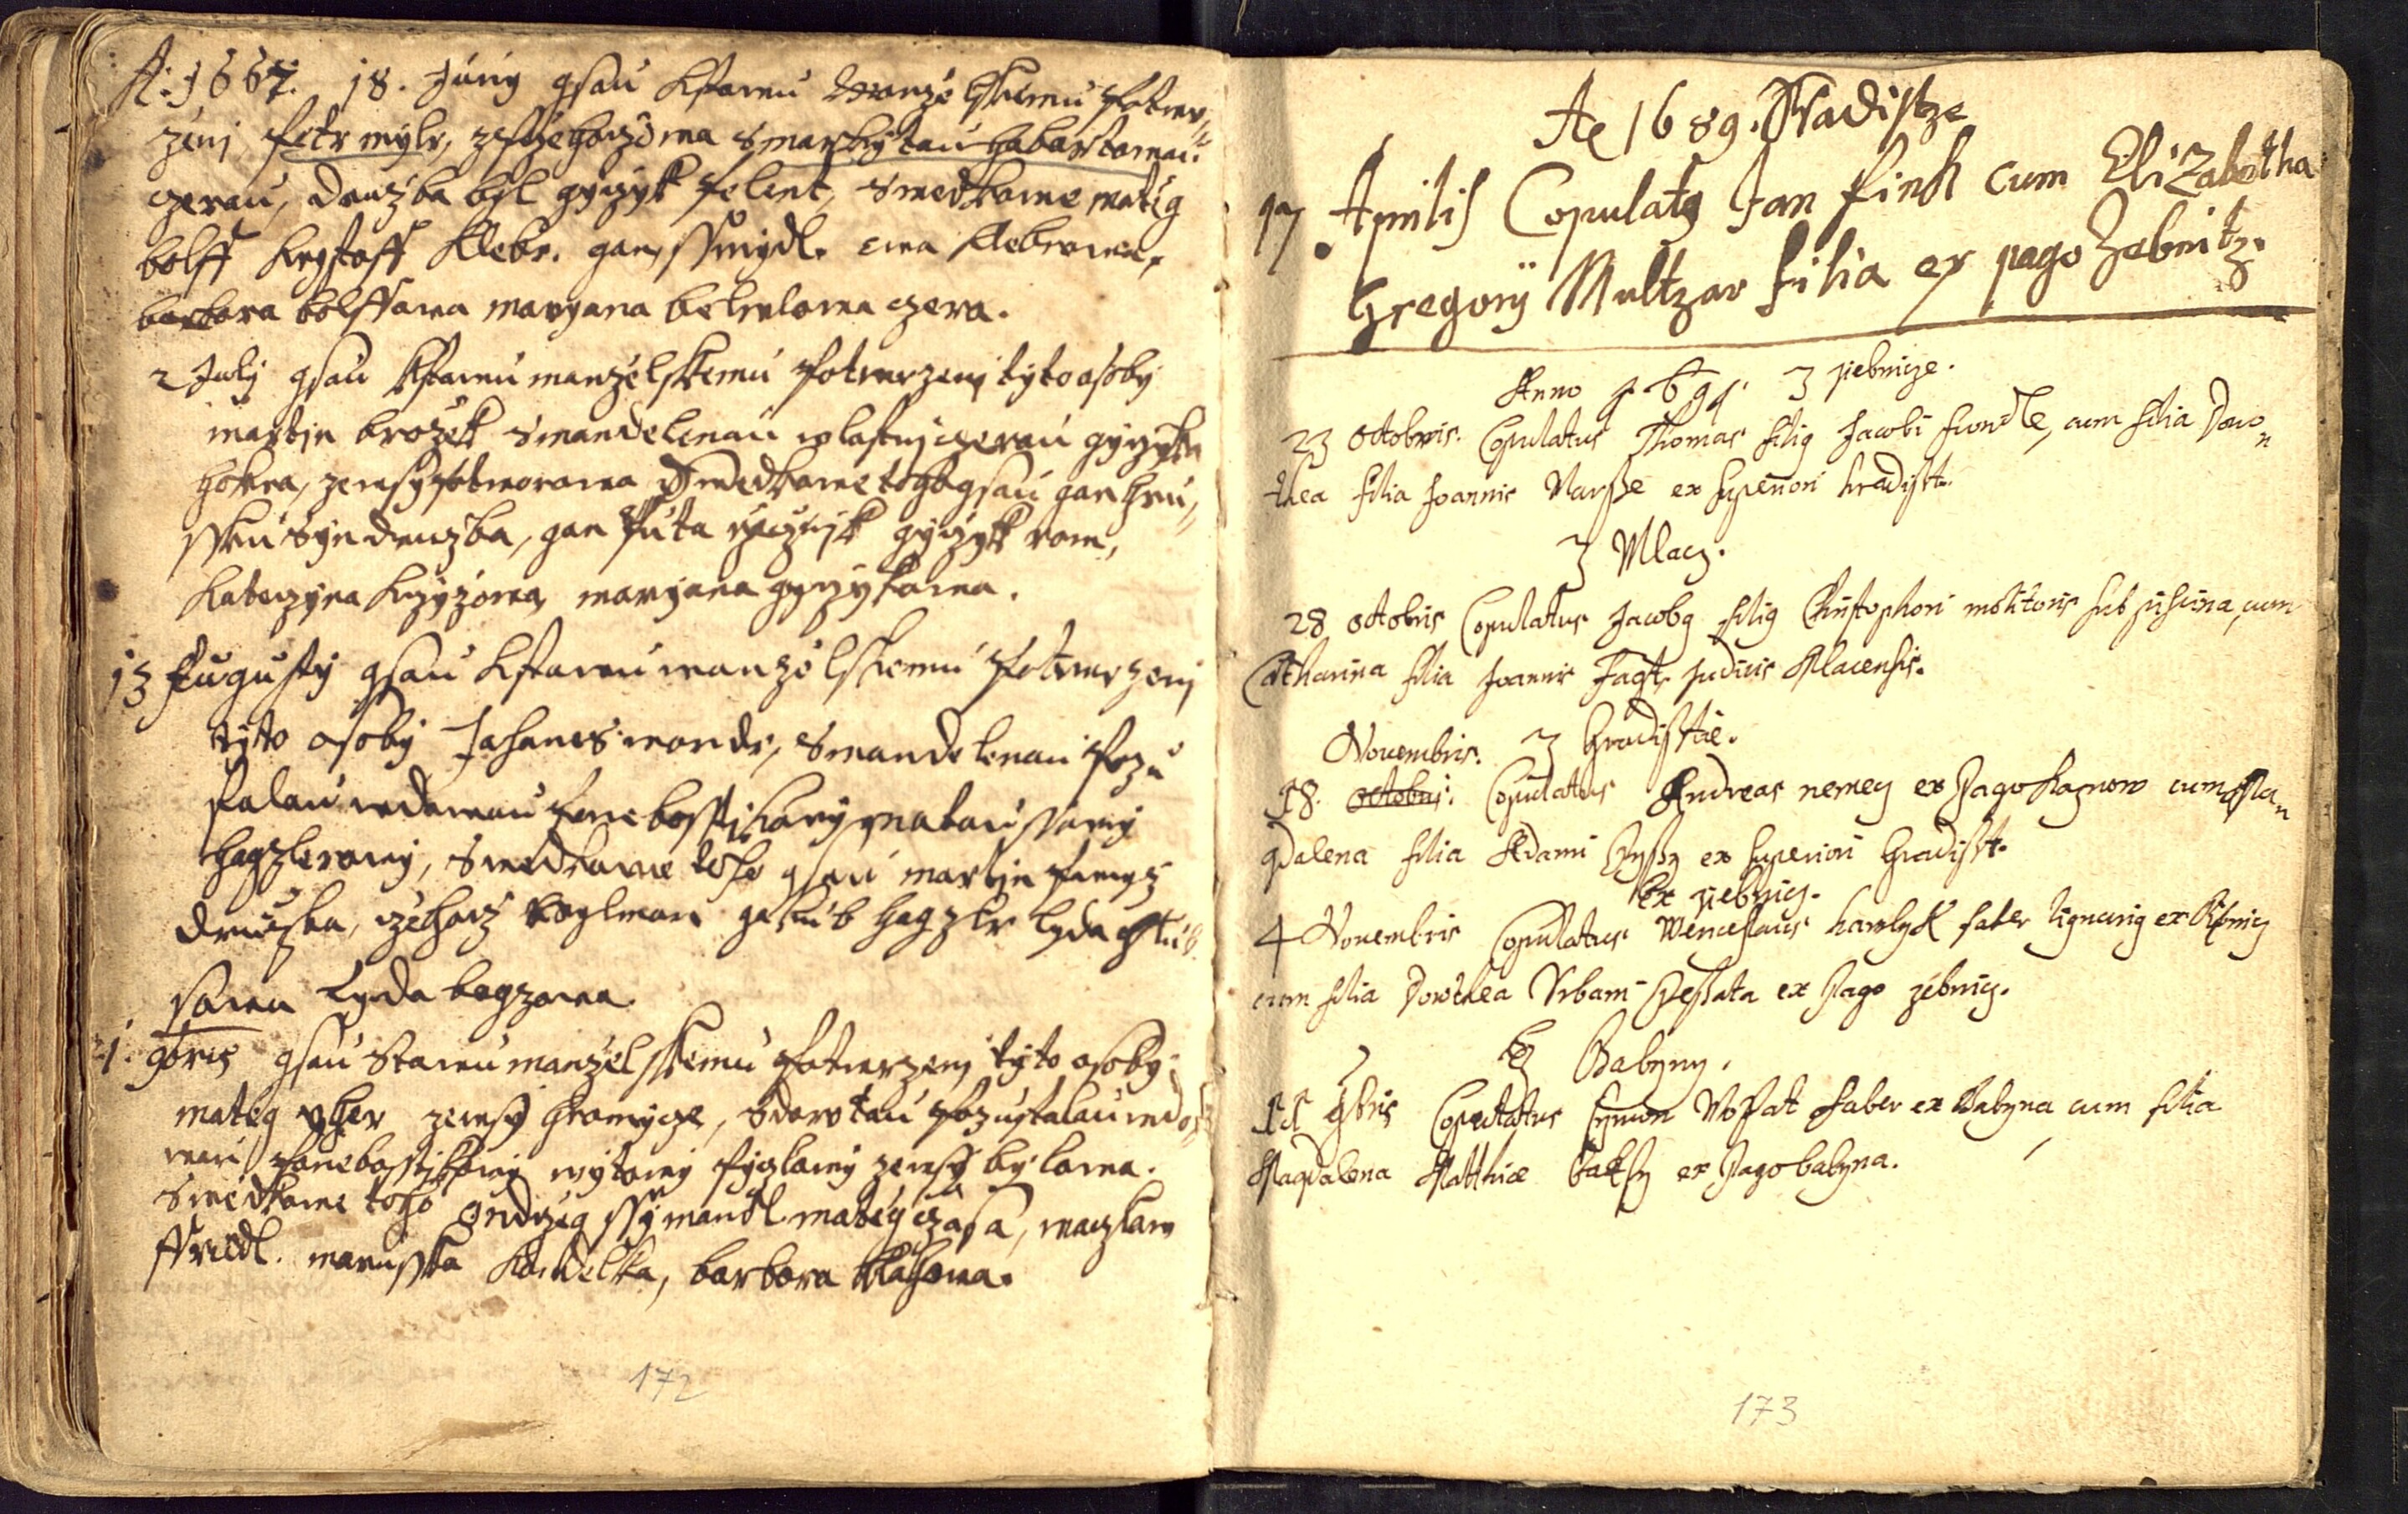 A: 1667. 18. Juny gsau kstawu Manzelskemu potwr„
zenj petr mylr, s markytau habartowau
czerau, druzba byl gyrzyk felent, swedkowe matieg
bolff krystoff klebr. gan ssmydl. ewa klebrowa,
barbora bolffowa maryana betrlowa czera.
2 July gsau kstawu manzelskemu potwrzenj tyto osoby
martin brozek s mandelenau wlastnj czerau gyrzyka
hokra, swedkowe toho gsau gan hru„
ssku syn druzba, gan kuta gyrzyk rom,
katerzyna krzyzowa, maryana gyrzykowa.
13 Augusty gsau kstawu manzelskemu potwrzenj
tyto osoby Johanes wondr, s mandelenau pozu
stalau wdowau po nebosstjkowy mataussowy
hagzlerowy, swedkowe toho gsau martin
druzba, rzehorz koglman gakub hagzlr lyda
sowa lyda bogzowa
1. 9bris gsau stawu manzelskemu potwrzenj tyto osoby
matieg uher zewsy hromycze, s dorotau pozustalau wdo
wau po nebosstjkowy wytowy fyglowy zewsy bylowa.
swedkowe toho ondrzeg ssymandl matieg czasa, waczlaw
ffridl. marusska koudelka, barbora klahowa.
172
Ao 1689. Hradistze
17 Aprilis Copulatq Jan Fink cum Elizabetha
Gregorij Multzar filia ex pago Zebnitz.
Anno 1691. Z žiebnicze.
23 octobris. Copulatus Thomas filiq Jacobi fiondle, cum filia Doro„
thea filia Joannis Varsse ex superiori hradisst.
Z Mlacz.
28 octobris Copulatus Jacobq filiq Christophori molitoris sub piscina, cum
Catharina filia Joannis Fagt, judicis Mlacensis.
Novembris. Z Hradisstie.
18. octobris. Copulatus Andreas nemecz ex Pago kaznow cum Ma„
gdalena filia Adami ex superiori Hradisst.
Ex žiebnicz.
4 Novembris Copulatus Wenceslaus hawlyk faber lignariq ex
cum filia Dorothea Urbani ex Pago žebnicz.
Z Babyny.
11 9bris Copulatus Symon Vopat faber ex Babyna cum filia
Magdalena Matthiæ baksy ex Pago babyna.
173